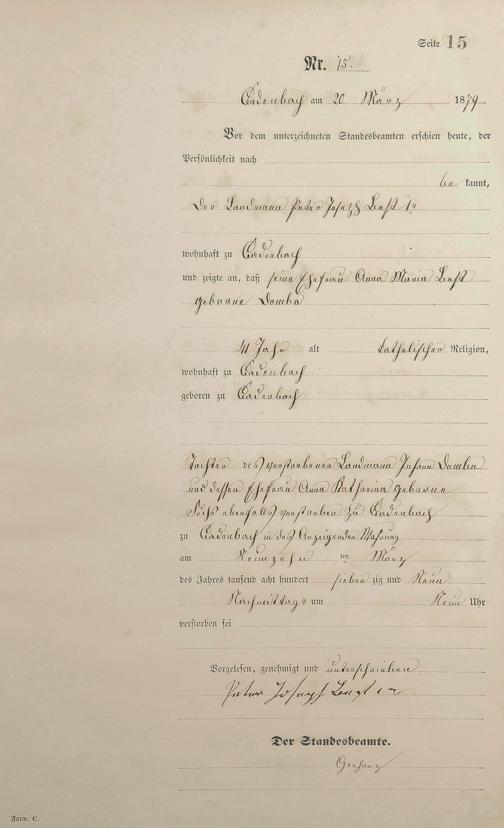 Seite 15
Nr. 15.
Cadenbach am 20 März 1879.
Vor dem unterzeichneten Standesbeamten erschien heute, der
Persönlichkeit nach
be kannt,
der Landmann Peter Joseph
wohnhaft zu Cadenbach
und zeigte an, daß seine Ehefrau Anna Maria
geborne Domba
41 Jahr alt katholischer Religion,
wohnhaft zu Cadenbach
geboren zu Cadenbach
Tochter des verstorbenen Landmann Johann
und dessen Ehefrau Anna Katharina geborne
ebenfalls verstorben zu Cadenbach
zu Cadenbach in des Anzeigenden Wohnung
am Neunzehn ten März
des Jahres tausend acht hundert sieben zig und Neun
Nachmittags um Neun Uhr
verstorben sei
Vorgelesen, genehmigt und unterschrieben
Peter Joseph
Der Standesbeamte.
Form. C.